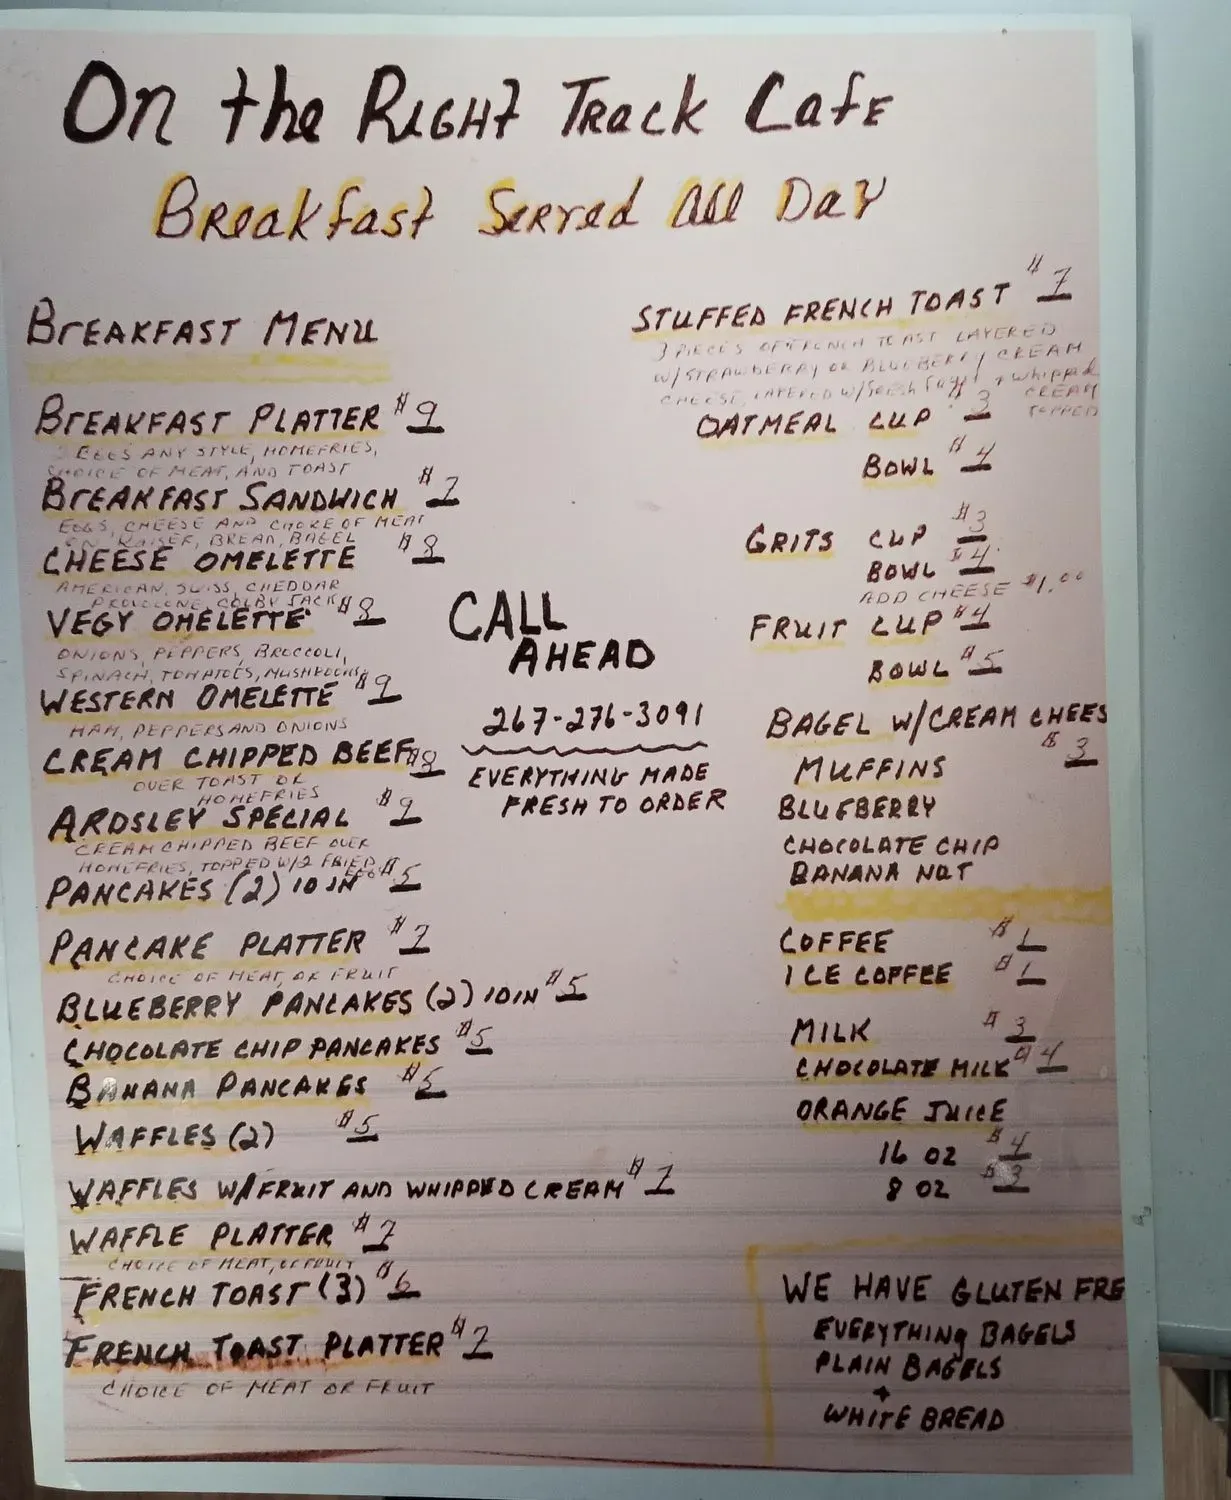 On the Right Track Cafe
Breakfast Served All Day
Breakfast Menu
Breakfast Platter $9
2 Eggs any style, homefries,
choice of meat, and toast
Breakfast Sandwich $7
Eggs, cheese and choice of meat
on Kaiser, bread, bagel
Cheese Omelette $8
American, Swiss, Cheddar
Provolone, Colby Jack
Vegy Omelette $8
Onions, Peppers, Broccoli,
Spinach, Tomatoes, Mushrooms
Western Omelette $9
Ham, Peppers and Onions
Cream Chipped Beef $8
over toast or
homefries
Ardsley Special $9
Cream chipped beef over
homefries, topped w/2 fried
egg
Pancakes (2) 10 in $5
Pancake Platter $7
Choice of meat, or fruit
Blueberry Pancakes (2) 10in $5
Chocolate Chip Pancakes $5
Banana Pancakes $5
Waffles (2) $5
Waffles w/Fruit and Whipped Cream $7
Waffle Platter $7
Choice of meat, or fruit
French Toast (3) $6
French Toast Platter $7
Choice of meat or fruit
Call
Ahead
267-276-3091
Everything made
fresh to order
Stuffed French Toast $7
3 pieces of French toast layered
w/strawberry or blueberry cream
cheese, layered w/fresh fruit + whipped
cream
topped
Oatmeal Cup $3
Bowl $4
Grits Cup $3
Bowl $4
Add cheese $1.00
Fruit Cup $4
Bowl $5
Bagel w/Cream Chees
$3
Muffins
Blueberry
Chocolate Chip
Banana Nut
Coffee $1
Ice Coffee $1
Milk $3
Chocolate Milk $4
Orange Juice
16 oz $4
8 oz $3
We have gluten fre
Everything Bagels
Plain Bagels
+
White Bread